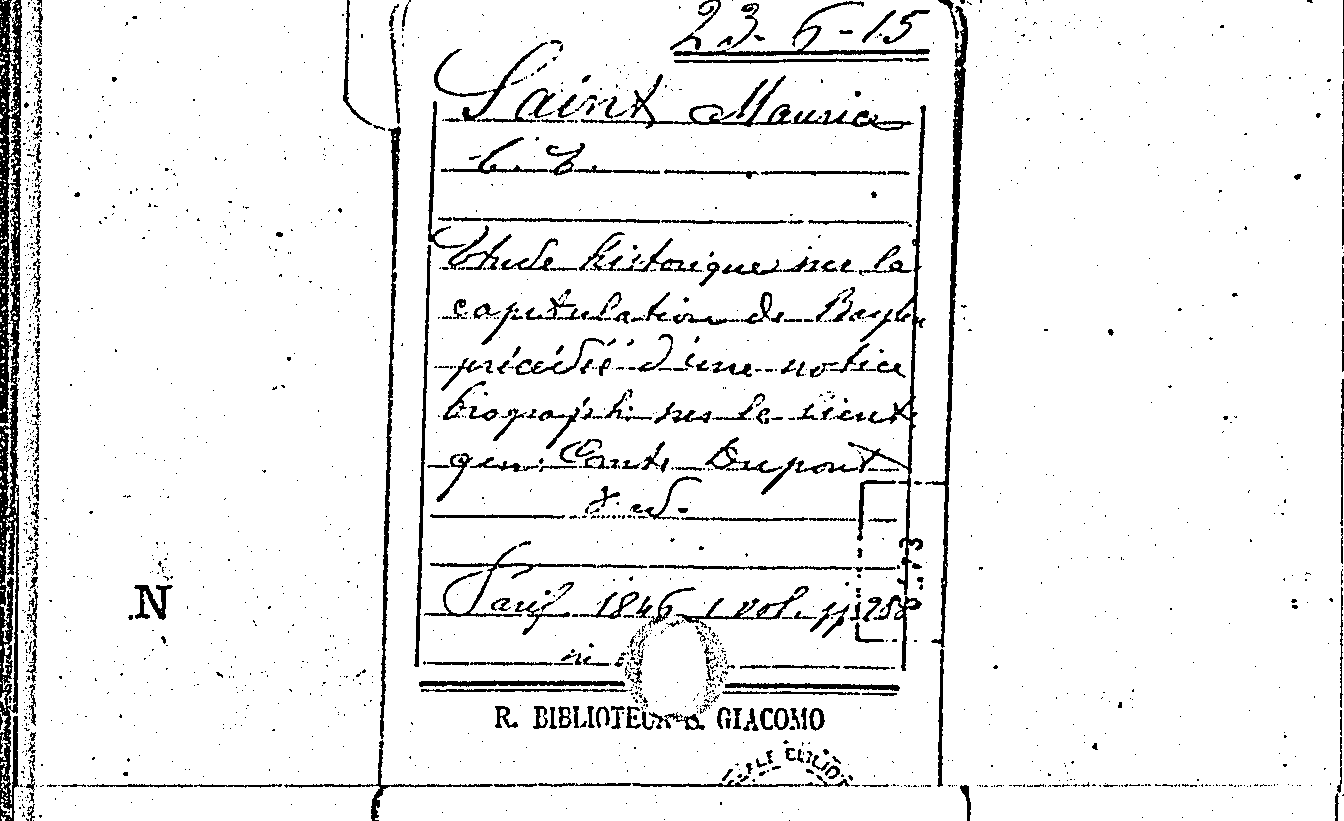 23-6-15
Saint Maurice
C. E.
Etude historique sur la
capitulation de Baylen
précédée d'une notice
biograph. sur le lieut
gen. Comte Dupont
Paris 1846 1 vol. pp. 258
N
R. BIBLIOTECA S. GIACOMO